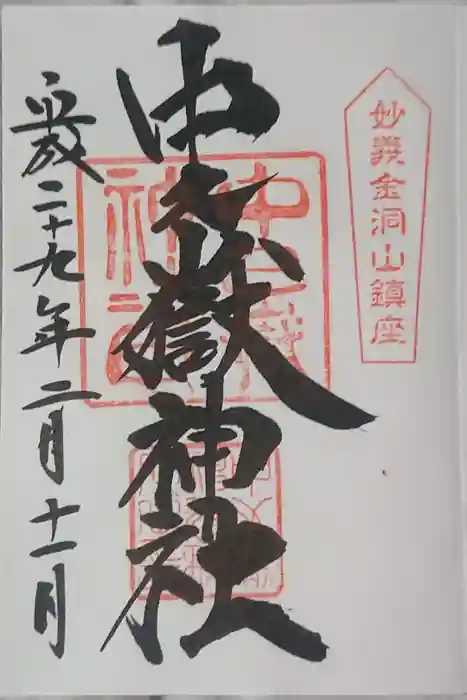 妙義金洞山鎮座
中之嶽神社
平成二十九年二月十一日